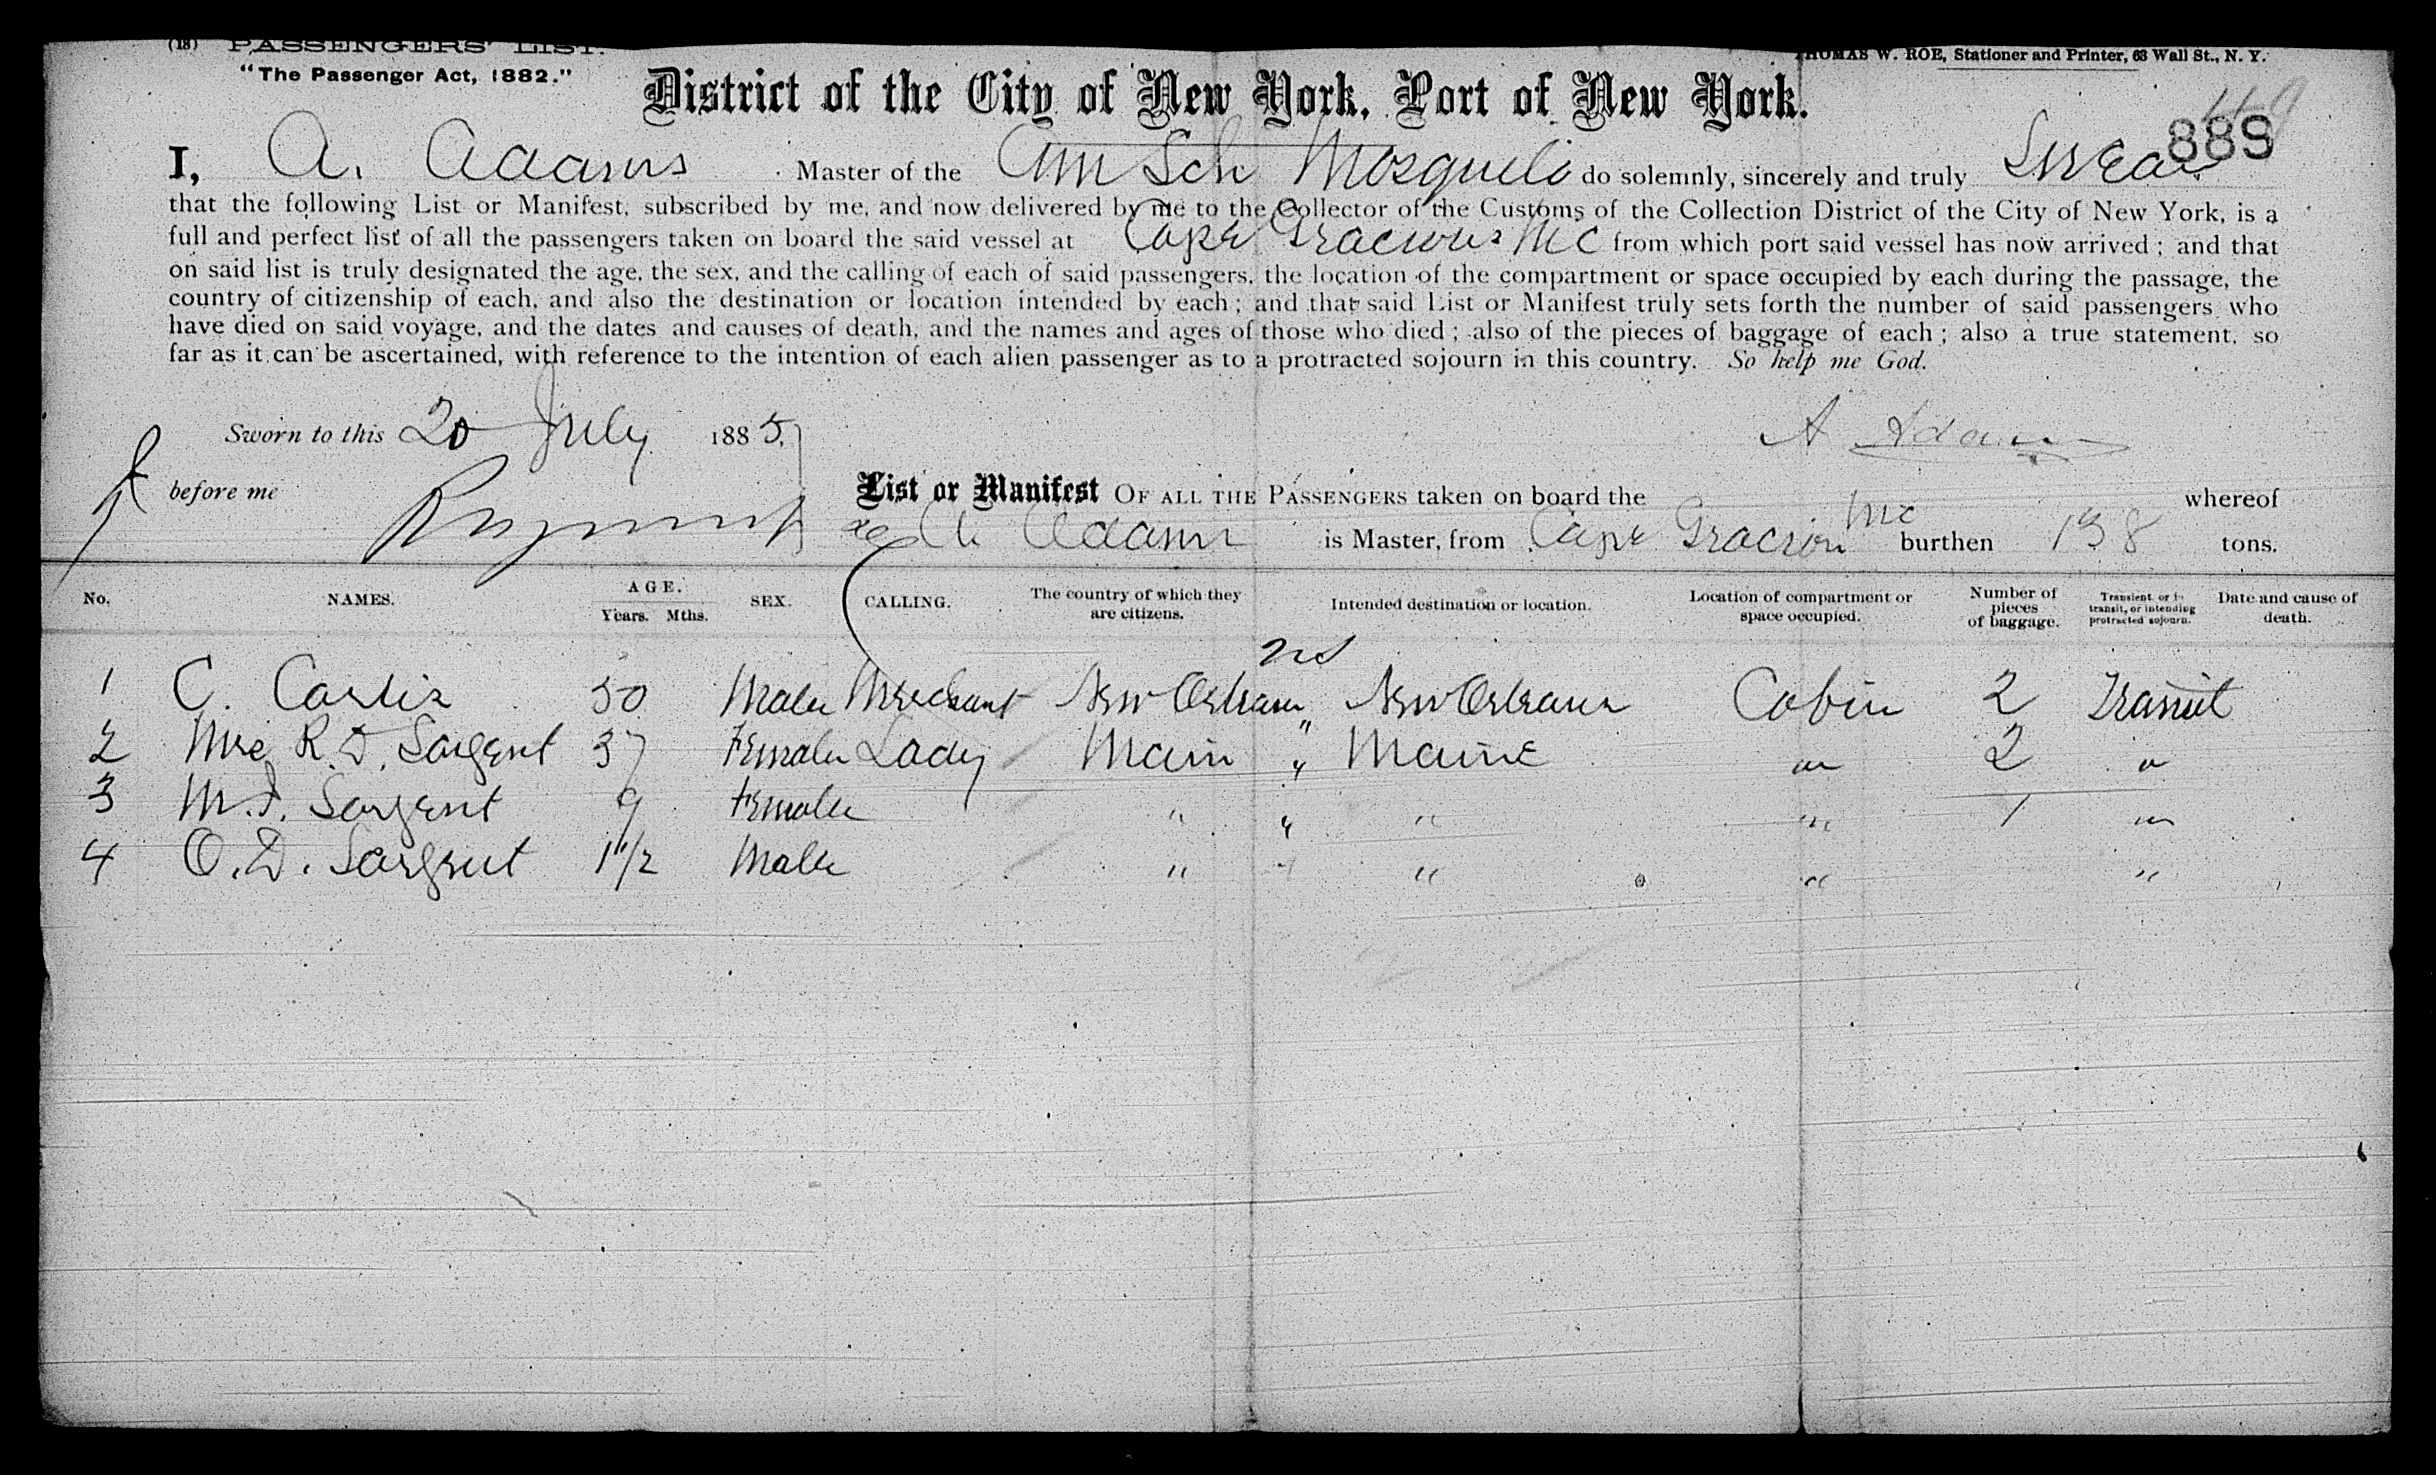 (18) PASSENGERS' LIST.
THOMAS W. ROE, Stationer and Printer, 63 Wall St., N. Y.
"The Passenger Act, 1882."
District of the City of New York, Port of New York.
889
I, A. Adams Master of the Am Sch Mosquito do solemnly, sincerely and truly Swear
that the following List or Manifest, subscribed by me, and now delivered by me to the Collector of the Customs of the Collection District of the City of New York, is a
full and perfect list of all the passengers taken on board the said vessel at Cape Gracious from which port said vessel has now arrived; and that
on said list is truly designated the age, the sex, and the calling of each of said passengers, the location of the compartment or space occupied by each during the passage, the
country of citizenship of each, and also the destination or location intended by each; and that said List or Manifest truly sets forth the number of said passengers who
have died on said voyage, and the dates and causes of death, and the names and ages of those who died; also of the pieces of baggage of each; also a true statement, so
far as it can be ascertained, with reference to the intention of each alien passenger as to a protracted sojourn in this country. So help me God.
Sworn to this 20 July 1885, A Adams
before me
List or Manifest OF ALL THE PASSENGERS taken on board the whereof
A. Adams is Master, from Cape Gracion burthen 138 tons.
No. NAMES. AGE. Years. Mths. SEX. CALLING. The country of which they are citizens. Intended destination or location. Location of compartment or space occupied. Number of pieces of baggage. Transient, or in transit, or intending protracted sojourn. Date and cause of death.
1 C. Cardiz 50 Male Merchant New Orleans New Orleans Cabin 2 Transit
2 Mrs R. D. Sargent 37 Female Lady Main " Maine " 2 "
3 M. I. Sargent 9 Female " " " " 1 "
4 O. D. Sargent 1 1/2 Male " " " " "